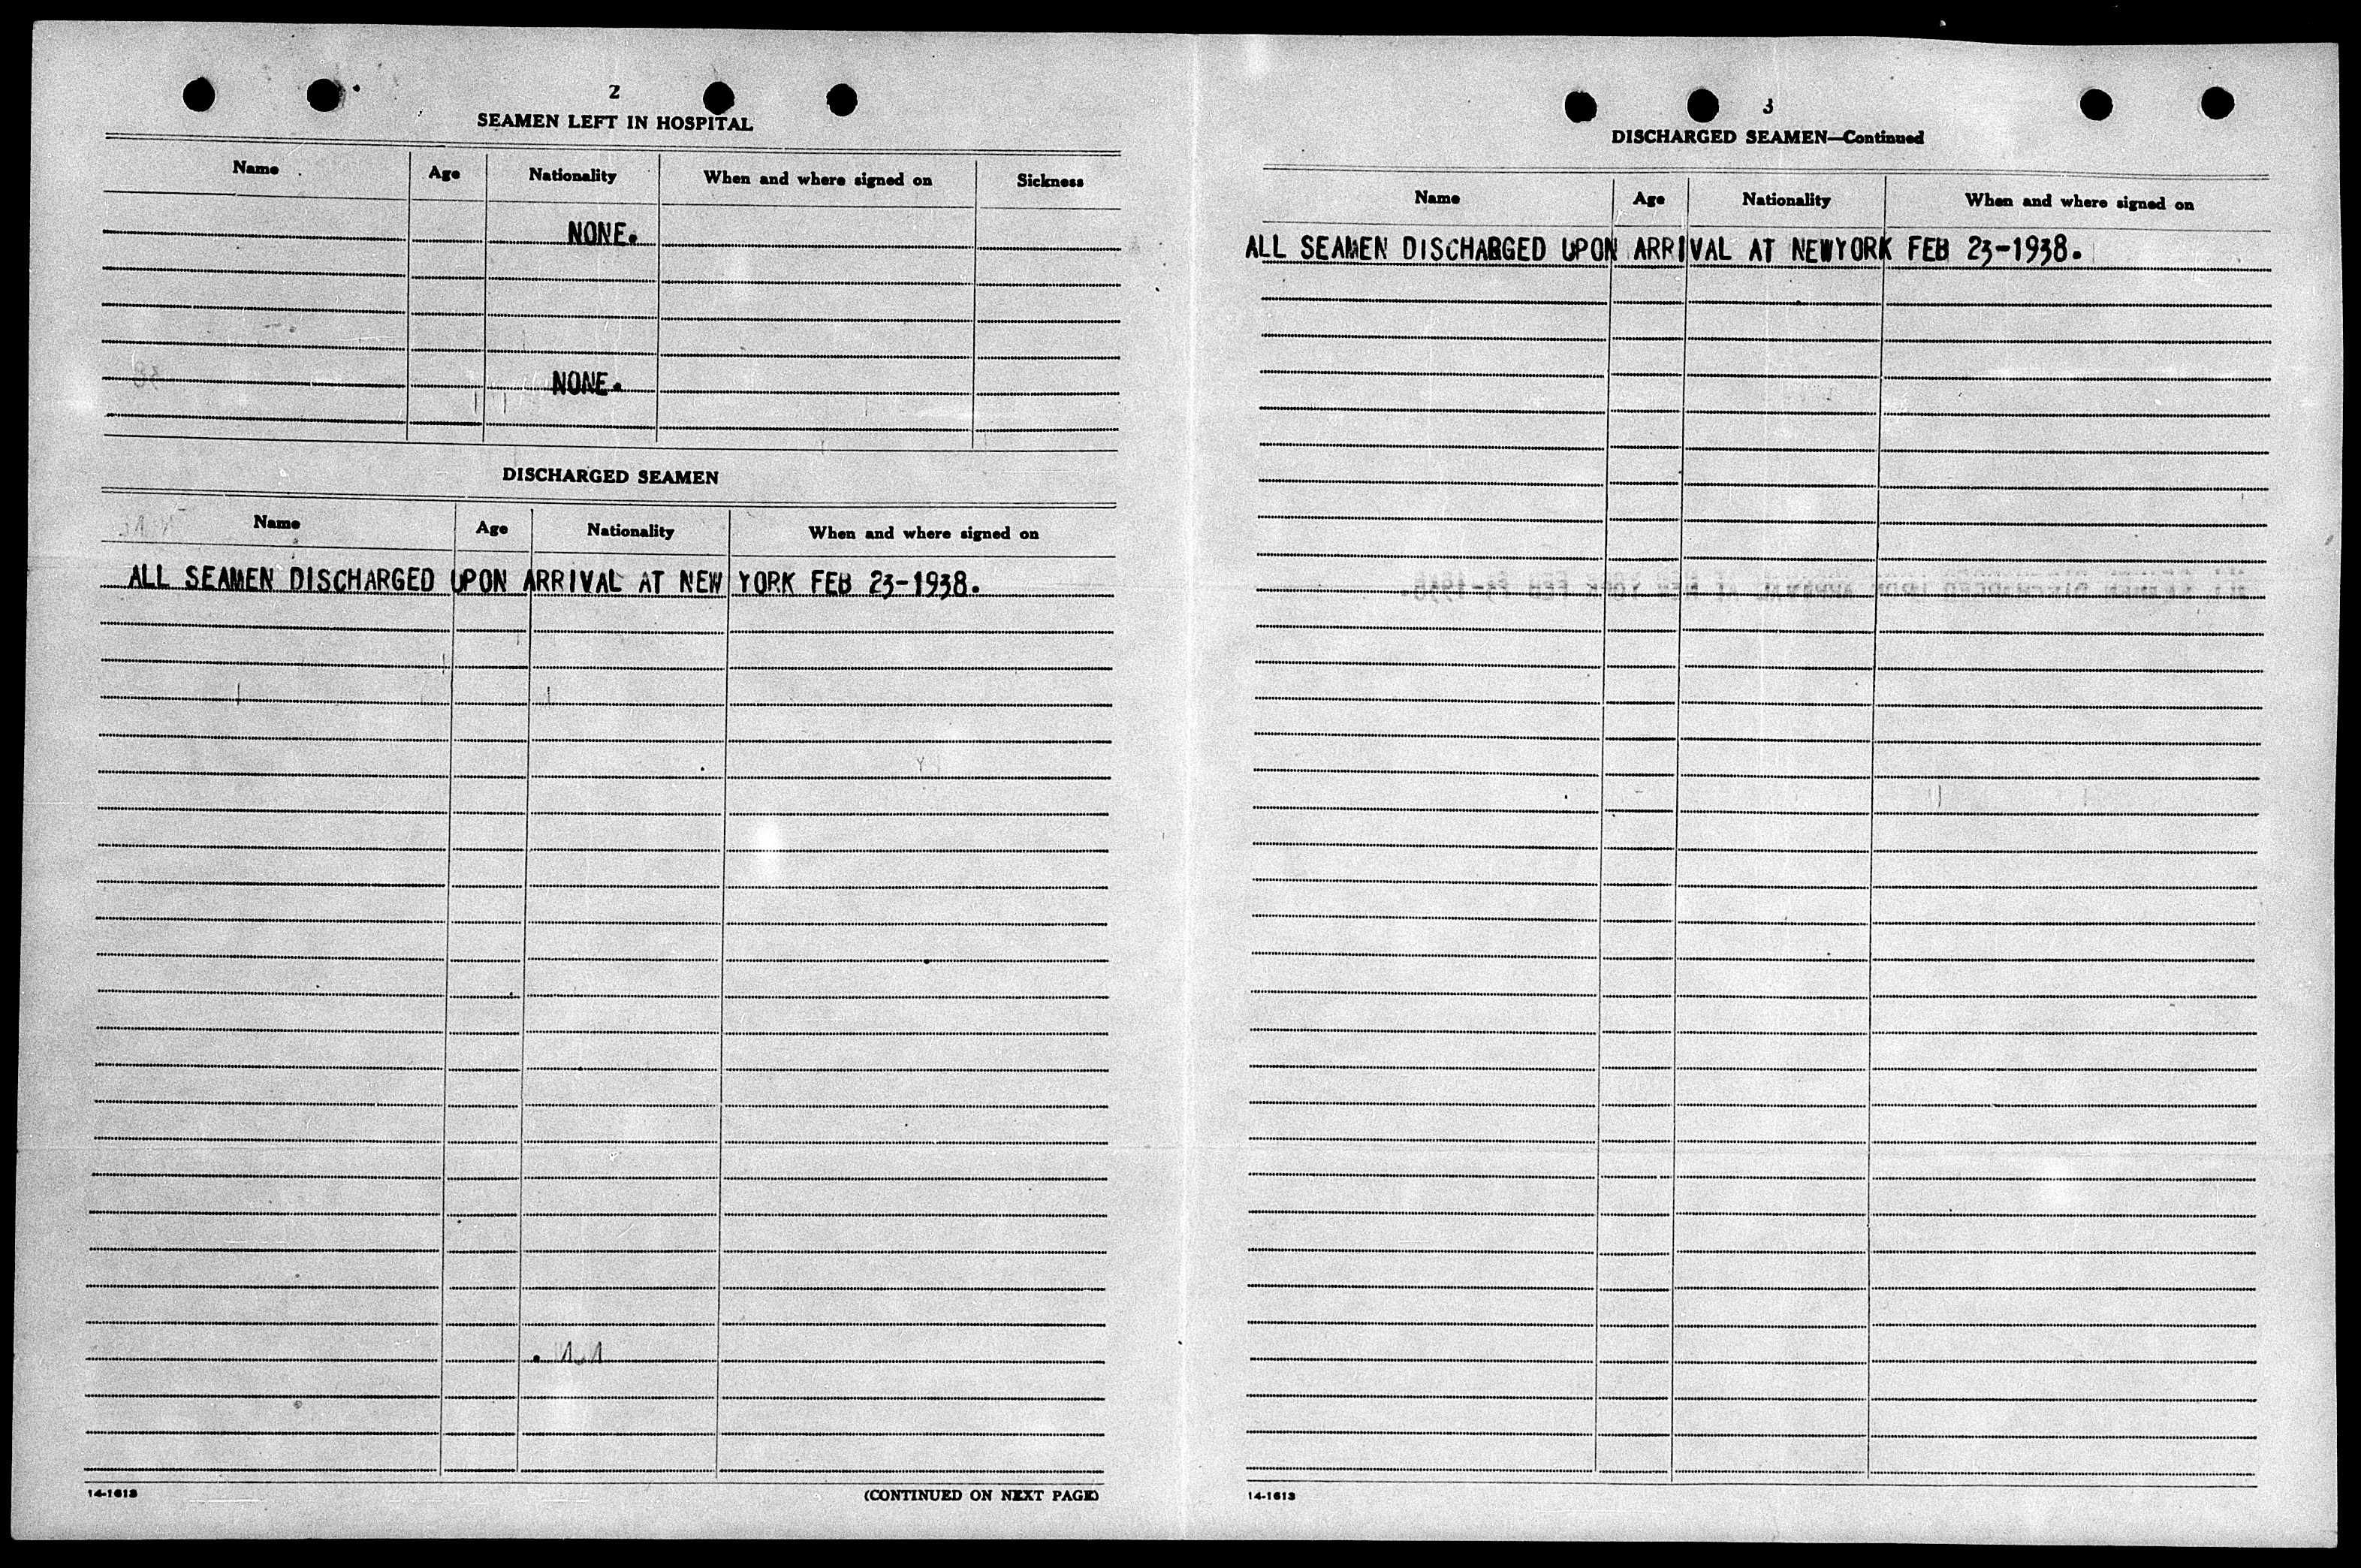 2
SEAMEN LEFT IN HOSPITAL
Name Age Nationality When and where signed on Sickness
NONE.
NONE.
DISCHARGED SEAMEN
Name Age Nationality When and where signed on
ALL SEAMEN DISCHARGED UPON ARRIVAL AT NEW YORK FEB 23-1938.
14-1613 (CONTINUED ON NEXT PAGE)
3
DISCHARGED SEAMEN—Continued
Name Age Nationality When and where signed on
ALL SEAMEN DISCHARGED UPON ARRIVAL AT NEWYORK FEB 23-1938.
14-1613